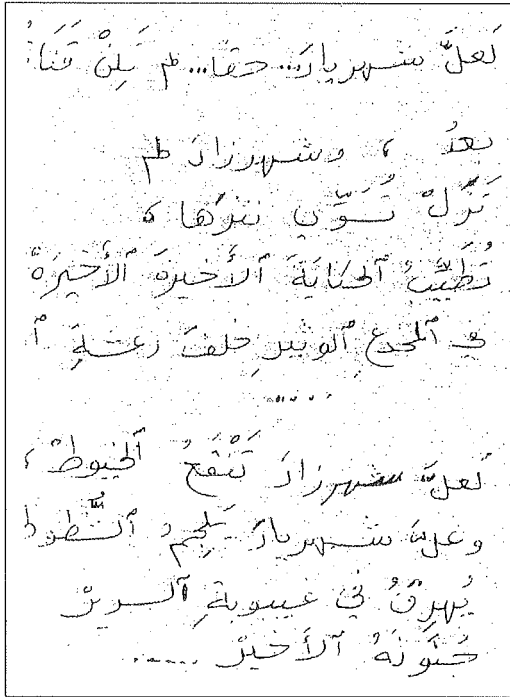 لَعلَّ شهريارَ... حقًا... لم يَلِنْ
بعدُ ، وشهرزادَ لم
تَزَلْ تُسَوِّي
الحكايَةَ الأَخيرةَ الأَخِيرَةْ
في المخدعِ الوثيرِ خلفَ رعشةِ ا
.....
لعلَّ شهرزادَ الخيوطْ ،
وعلَّ شهريارَ يُلجِمُ الشُّطوط
يُهرِقُ في غيبوبةِ السريرْ
جُنونَهُ الأَخيرْ .....